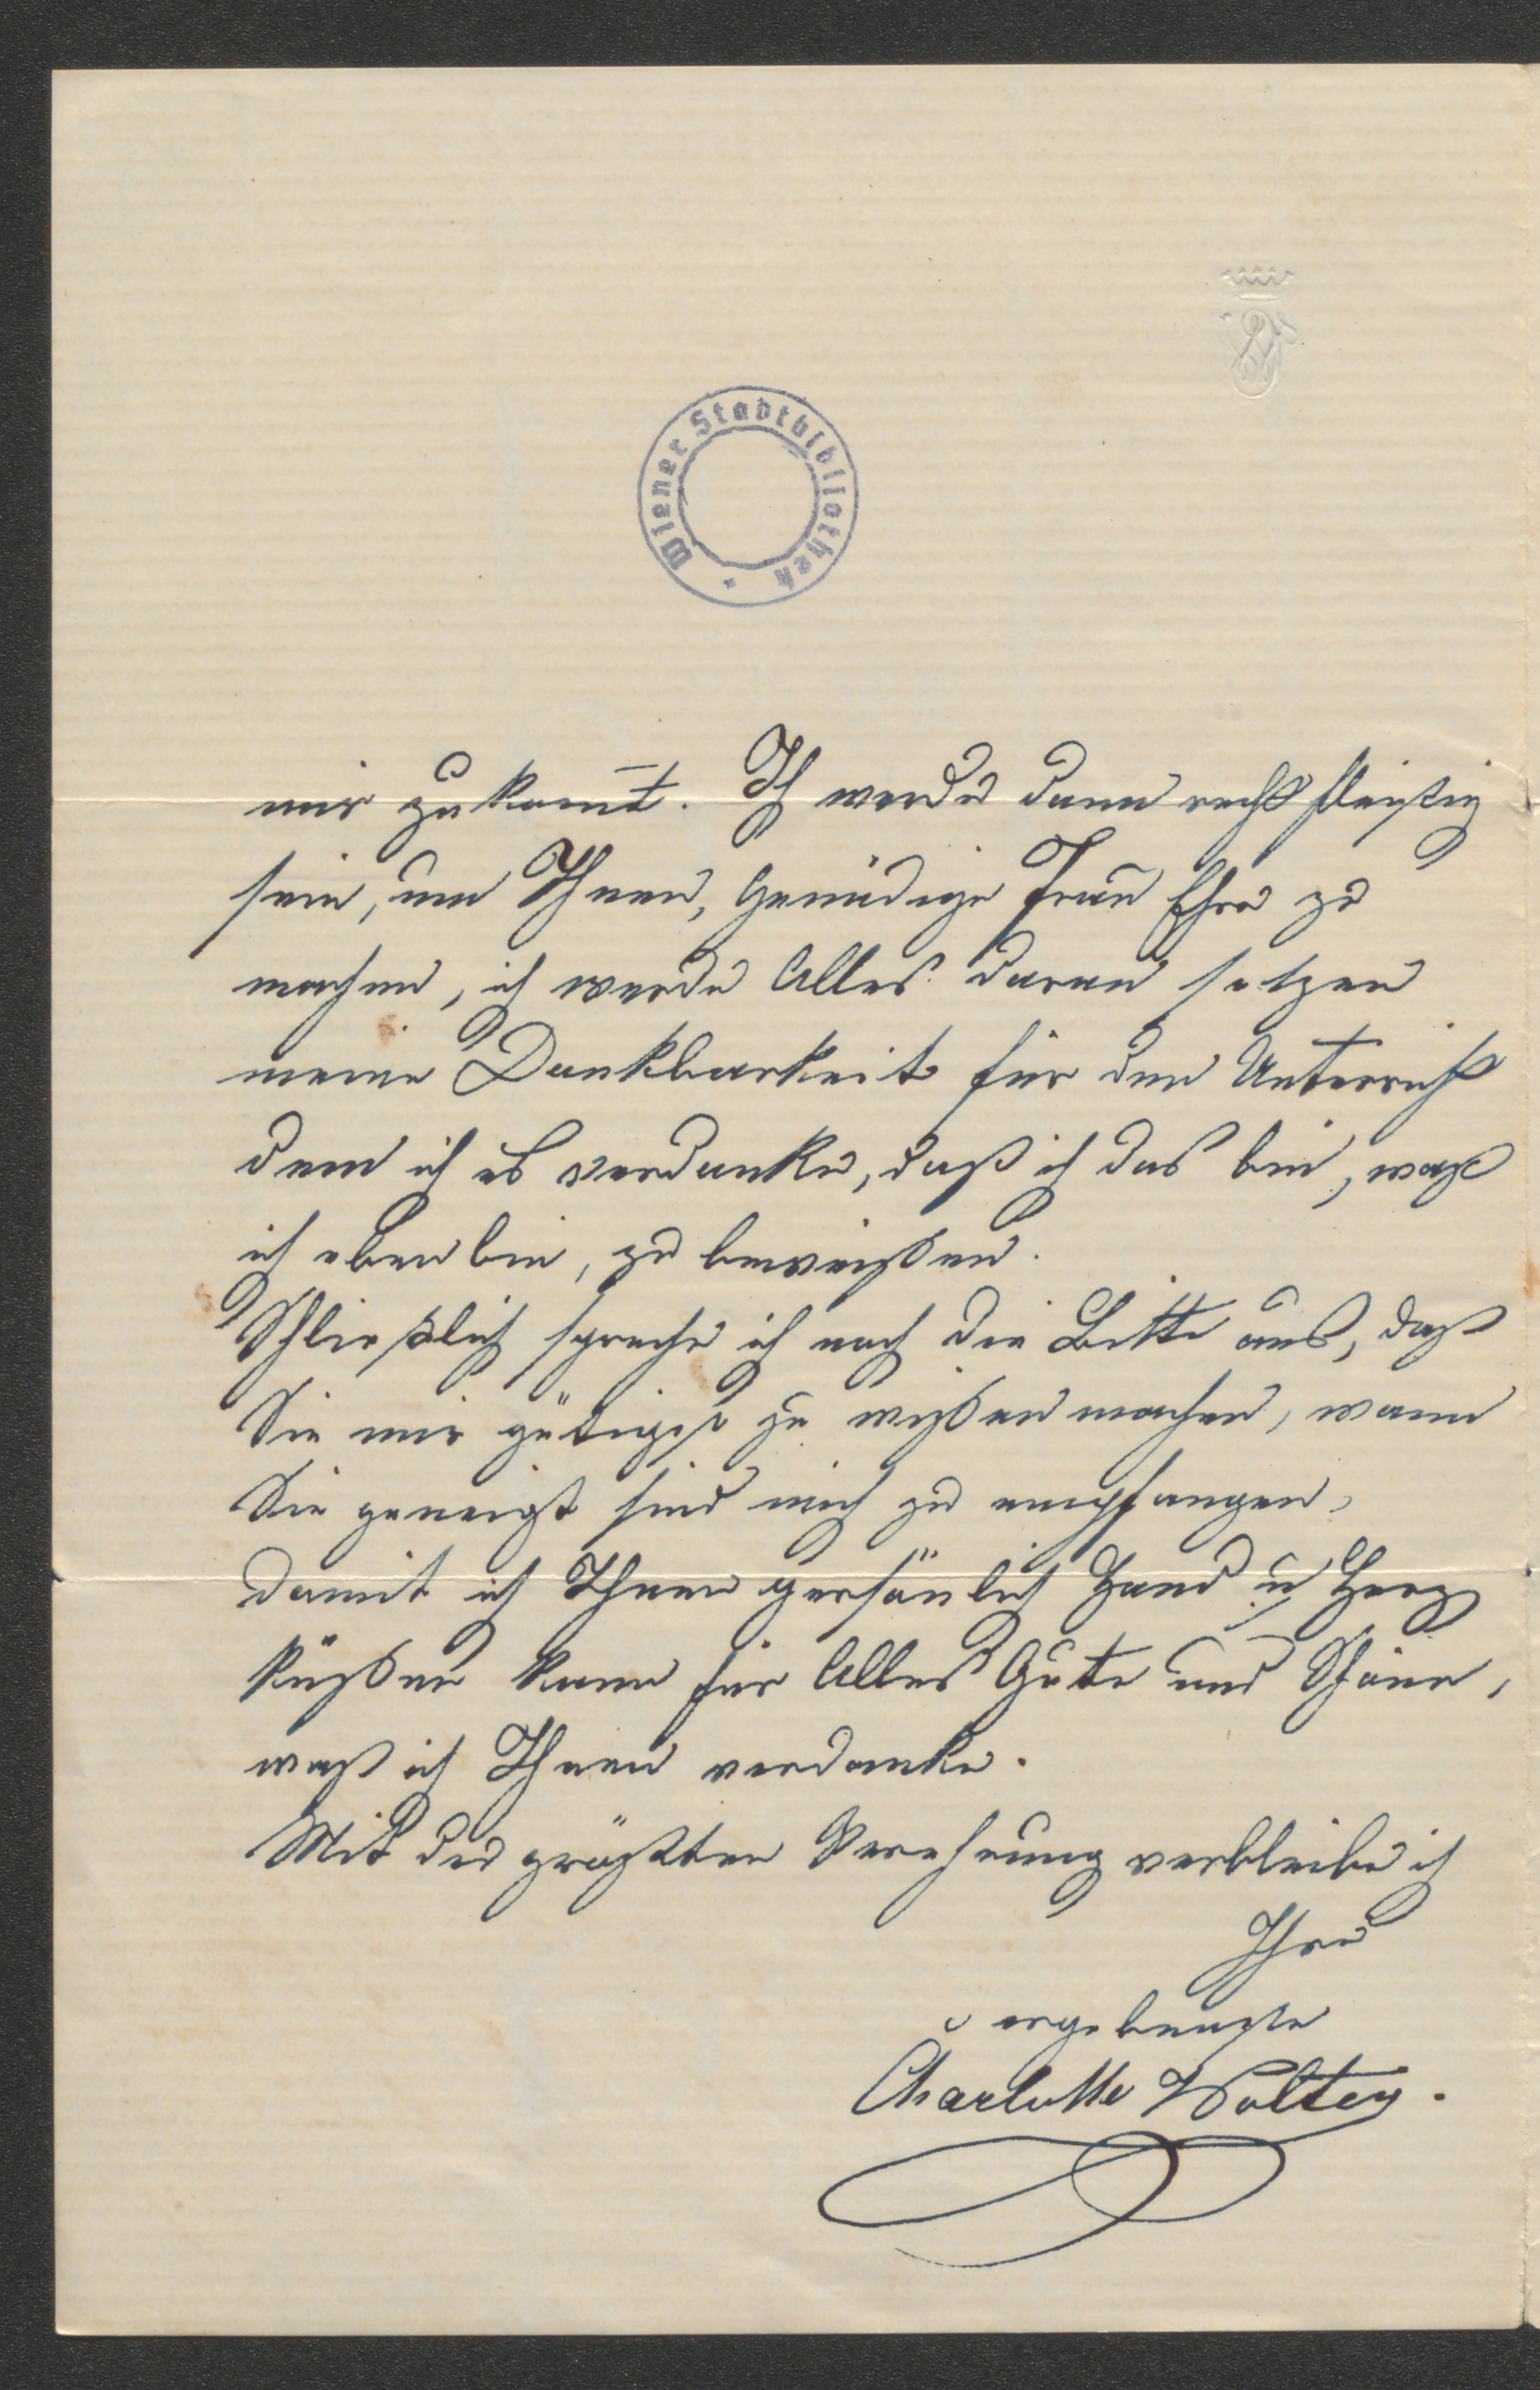 Wiener Stadtbibliothek
mir zukom̅t. Ich werde dann recht fleißig
sein, um Ihnen, Genädige Frau Ehre zu
machen, ich werde Alles daran setzen
meine Dankbarkeit für den Unterricht
dem ich es verdanke, daß ich das bin, waß
ich eben bin, zu beweißen.
Schließlich spreche ich noch die Bitte aus, daß
Sie mir gütigst zu wißen machen, wann
Sie geneigt sind mich zu empfangen,
damit ich Ihnen persönlich Hand u Herz
küßen kann für Alles Gute und Schöne,
waß ich Ihnen verdanke.
Mit der größten Verehrung verbleibe ich
Ihre
ergebenste
Charlotte Wolter.